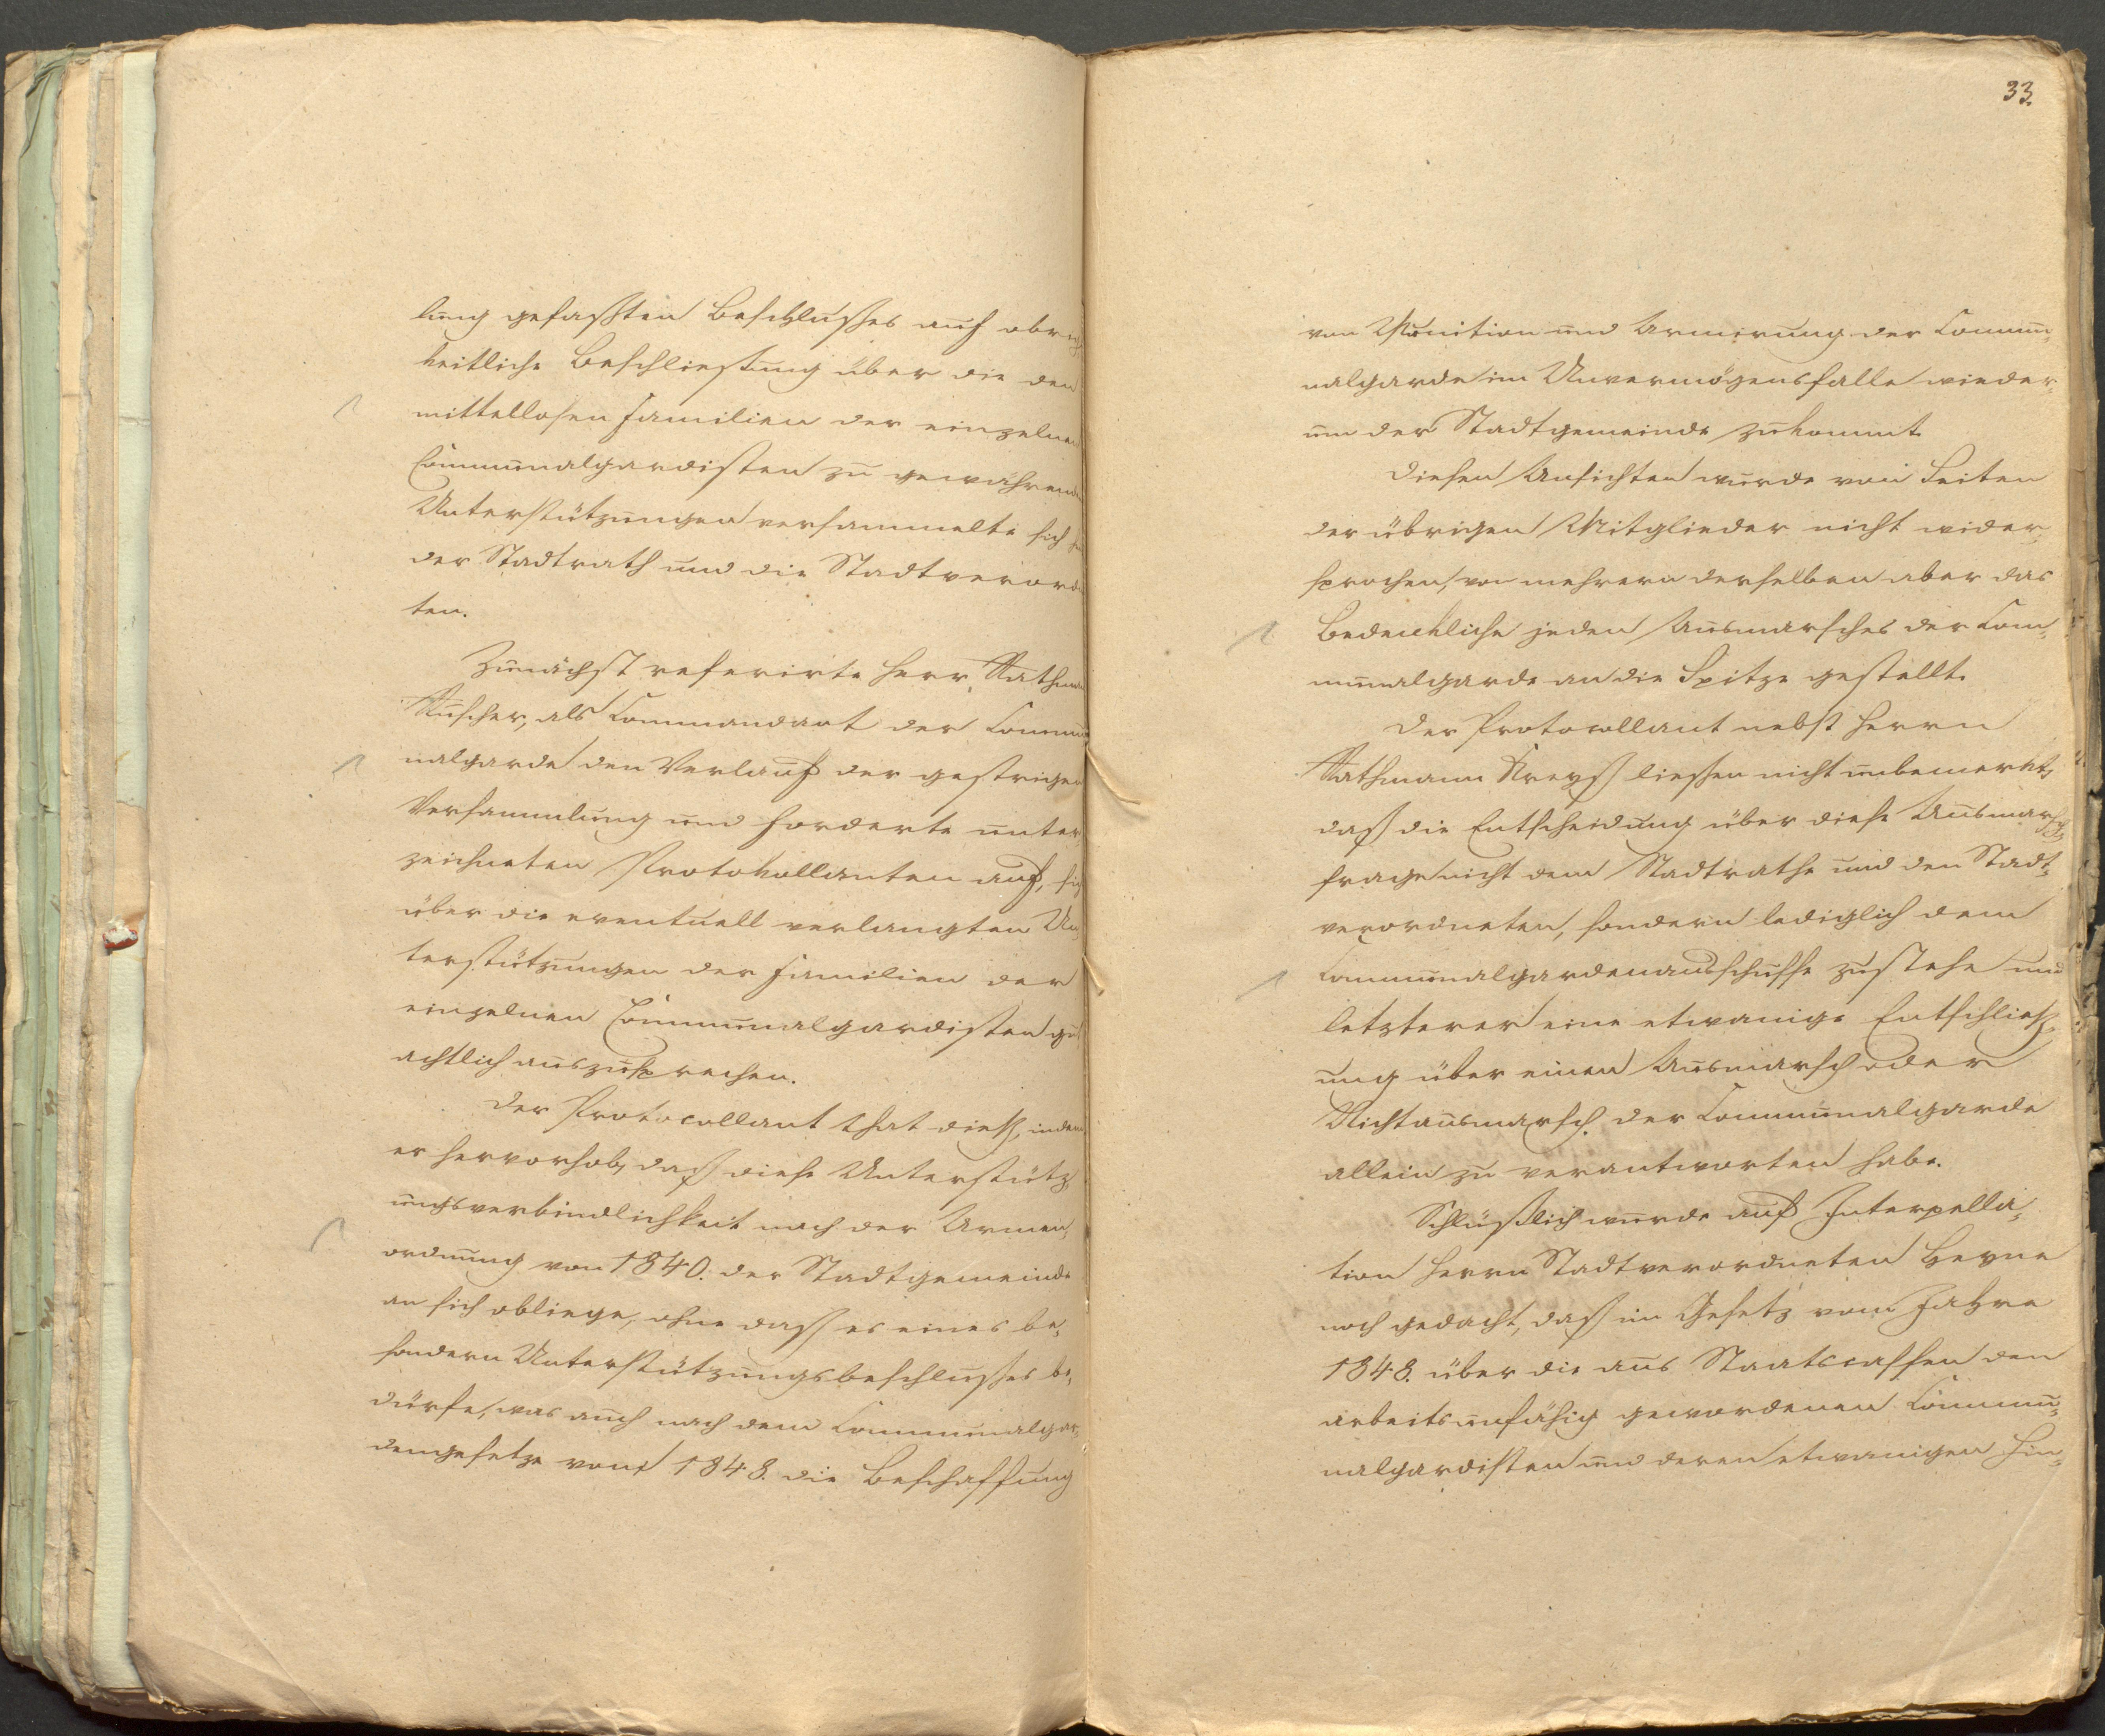 lung gefaßten Beschlußes auf obrig
keitliche Beschließung über die den
mittellosen Familien der einzelnen
Communalgardisten zu gewährenden
Unterstützungen versammelte sich
der Stadtrath und die Stadtverord
ten.
Zunächst referirte Herr Rathmann
Ruscher, als Commandant der Commu
nalgarde den Verlauf der gestrigen
Versammlung und forderte unter
zeichneten Protokollanten auf, sich
über die eventuell verlangten Un
terstützungen der Familien der
einzelnen Communalgardisten gut
achtlich auszusprechen.
Der Protocollant that dieß, indem
er hervorhob, daß diese Unterstütz
ungsverbindlichkeit nach der Armen
ordnung von 1840. der Stadtgemeinde
an sich obliege, ohne daß es eines be¬
sondern Unterstützungsbeschlußes be¬
dürfe, was auch nach dem Communalgar
dengesetze vom 1848. die Beschaffung
33.
von Munition und Armirung der Commu¬
nalgarde im Unvermögensfalle wieder¬
um der Stadtgemeinde zukommt.
Diesen Ansichten wurde von Seiten
der übrigen Mitglieder nicht wider¬
sprochen, von mehrern derselben aber das
Bedenkliche jeden Ausmarsches der Com¬
munalgarde an die Spitze gestellt.
Der Protocollant nebst Herrn
Rathmann Kreyß ließen nicht unbemerkt,
daß die Entscheidung über diese Ausmarsch¬
frage nicht dem Stadtrathe und den Stadt¬
verordneten, sondern lediglich dem
Communalgardenausschusse zustehe und
letzterer eine etwanige Entschließ¬
ung über einen Ausmarsch oder
Nichtausmarsch der Communalgarde
allein zu verantworten habe.
Schlüßlich wurde auf Interpella¬
tion Herrn Stadtverordneten Heyne
noch gedacht, daß im Gesetz vom Jahre
1848. über die aus Staatscassen den
arbeitsunfähig gewordenen Commu¬
nalgardisten und deren etwanigen Hin¬